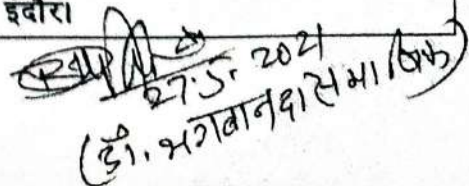 इदौरा
27.5.2021
(डॉ. भगवानदास